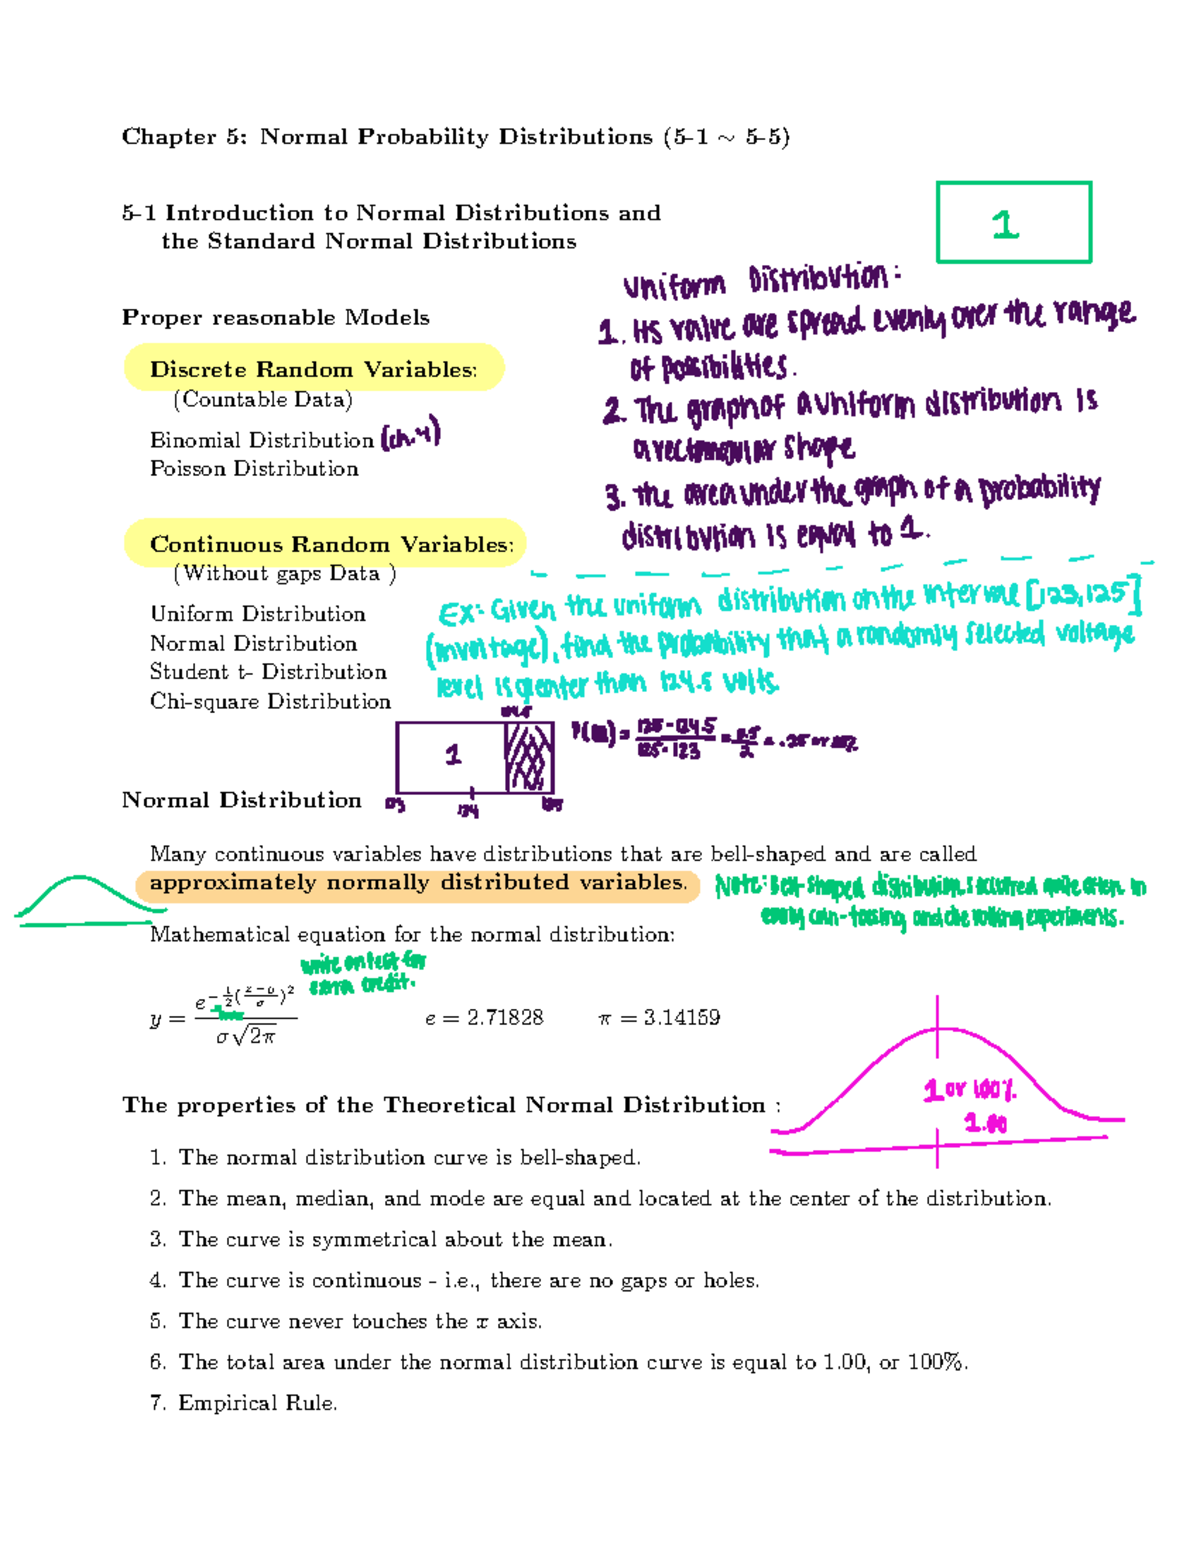 Chapter 5: Normal Probability Distributions (5-1 ∼ 5-5)
5-1 Introduction to Normal Distributions and
the Standard Normal Distributions
1
Uniform Distribution:
1. Its value are spread evenly over the range
of possibilities.
2. The graph of a uniform distribution is
a rectangular shape
3. The area under the graph of a probability
distribution is equal to 1.
Proper reasonable Models
Discrete Random Variables:
(Countable Data)
Binomial Distribution (ch.4)
Poisson Distribution
Continuous Random Variables:
(Without gaps Data )
Uniform Distribution
Normal Distribution
Student t- Distribution
Chi-square Distribution
Ex: Given the uniform distribution on the [123,125]
(in voltage), find the probability that a randomly selected voltage
level is greater than 124.5 volts.
124.5
1
123
124
125
= 125-124.5 / 125-123 = 0.5 / 2 = .25 or 25%
Normal Distribution
Many continuous variables have distributions that are bell-shaped and are called
approximately normally distributed variables.
Note: Bell-shaped distributions occurred quite often in
coin-tossing, and die rolling experiments.
Mathematical equation for the normal distribution:
write on test for
extra credit.
y = e^{-1/2((x-μ)/σ)^2} / σ√2π   e = 2.71828   π = 3.14159
1 or 100%
1.00
The properties of the Theoretical Normal Distribution :
1. The normal distribution curve is bell-shaped.
2. The mean, median, and mode are equal and located at the center of the distribution.
3. The curve is symmetrical about the mean.
4. The curve is continuous - i.e., there are no gaps or holes.
5. The curve never touches the x axis.
6. The total area under the normal distribution curve is equal to 1.00, or 100%.
7. Empirical Rule.